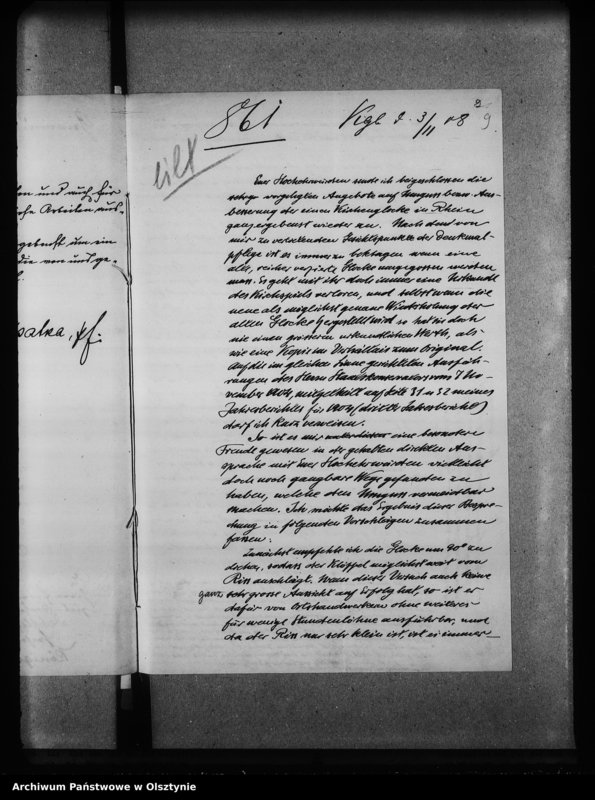 861
Kgl. d. 3/11 08
9
eilt
Euer Hochehrwürden sende ich beigeschlossen die
vorgelegten Angebote auf Umguss bezw. Aus-
besserung der einen Kirchenglocke in Rhein
ganz ergebenst wieder zu. Nach dem von
mir zu vertretenden Gesichtspunkte der Denkmal-
pflege ist es immer zu beklagen wenn eine
alte, reicher verzierte Glocke umgegossen werden
muss. Es geht mit ihr doch immer eine Urkunde
des Kirchspiels verloren, und selbst wenn die
neue als möglichst genaue Wiederholung der
alten Glocke hergestellt wird so hat sie doch
nie einen grösseren urkundlichen Werth, als
wie eine Kopie im Verhältnis zum Original.
Auf die im gleichen Sinne gerichteten Ausfüh-
rungen des Herrn Staatskonservators vom 7 No-
vember 1904, mitgetheilt auf Seite 51 u 52 meines
Jahresberichts für 1904 (dritter Jahresbericht)
darf ich kurz verweisen.
So ist es mir eine besondere
Freude gewesen in der gehabten direkten Aus-
sprache mit Euer Hochehrwürden vielleicht
doch noch gangbare Wege gefunden zu
haben, welche den Umguss vermeidbar
machen. Ich möchte das Ergebnis dieser Bespre-
chung in folgenden Vorschlägen zusammen
fassen:
Zunächst empfehle ich die Glocke um 90° zu
drehen, sodass der Klöppel möglichst weit vom
Riss anschlägt. Wenn dieser Versuch auch keine
ganz sehr grosse Aussicht auf Erfolg hat, so ist er
dafür von Ortshandwerkern ohne weiteres
für wenige Stundenlöhne ausführbar, und
da der Riss nur sehr klein ist, ist es immer
und auch für
Arbeiten aus-
um ein
die von
Archiwum Państwowe w Olsztynie